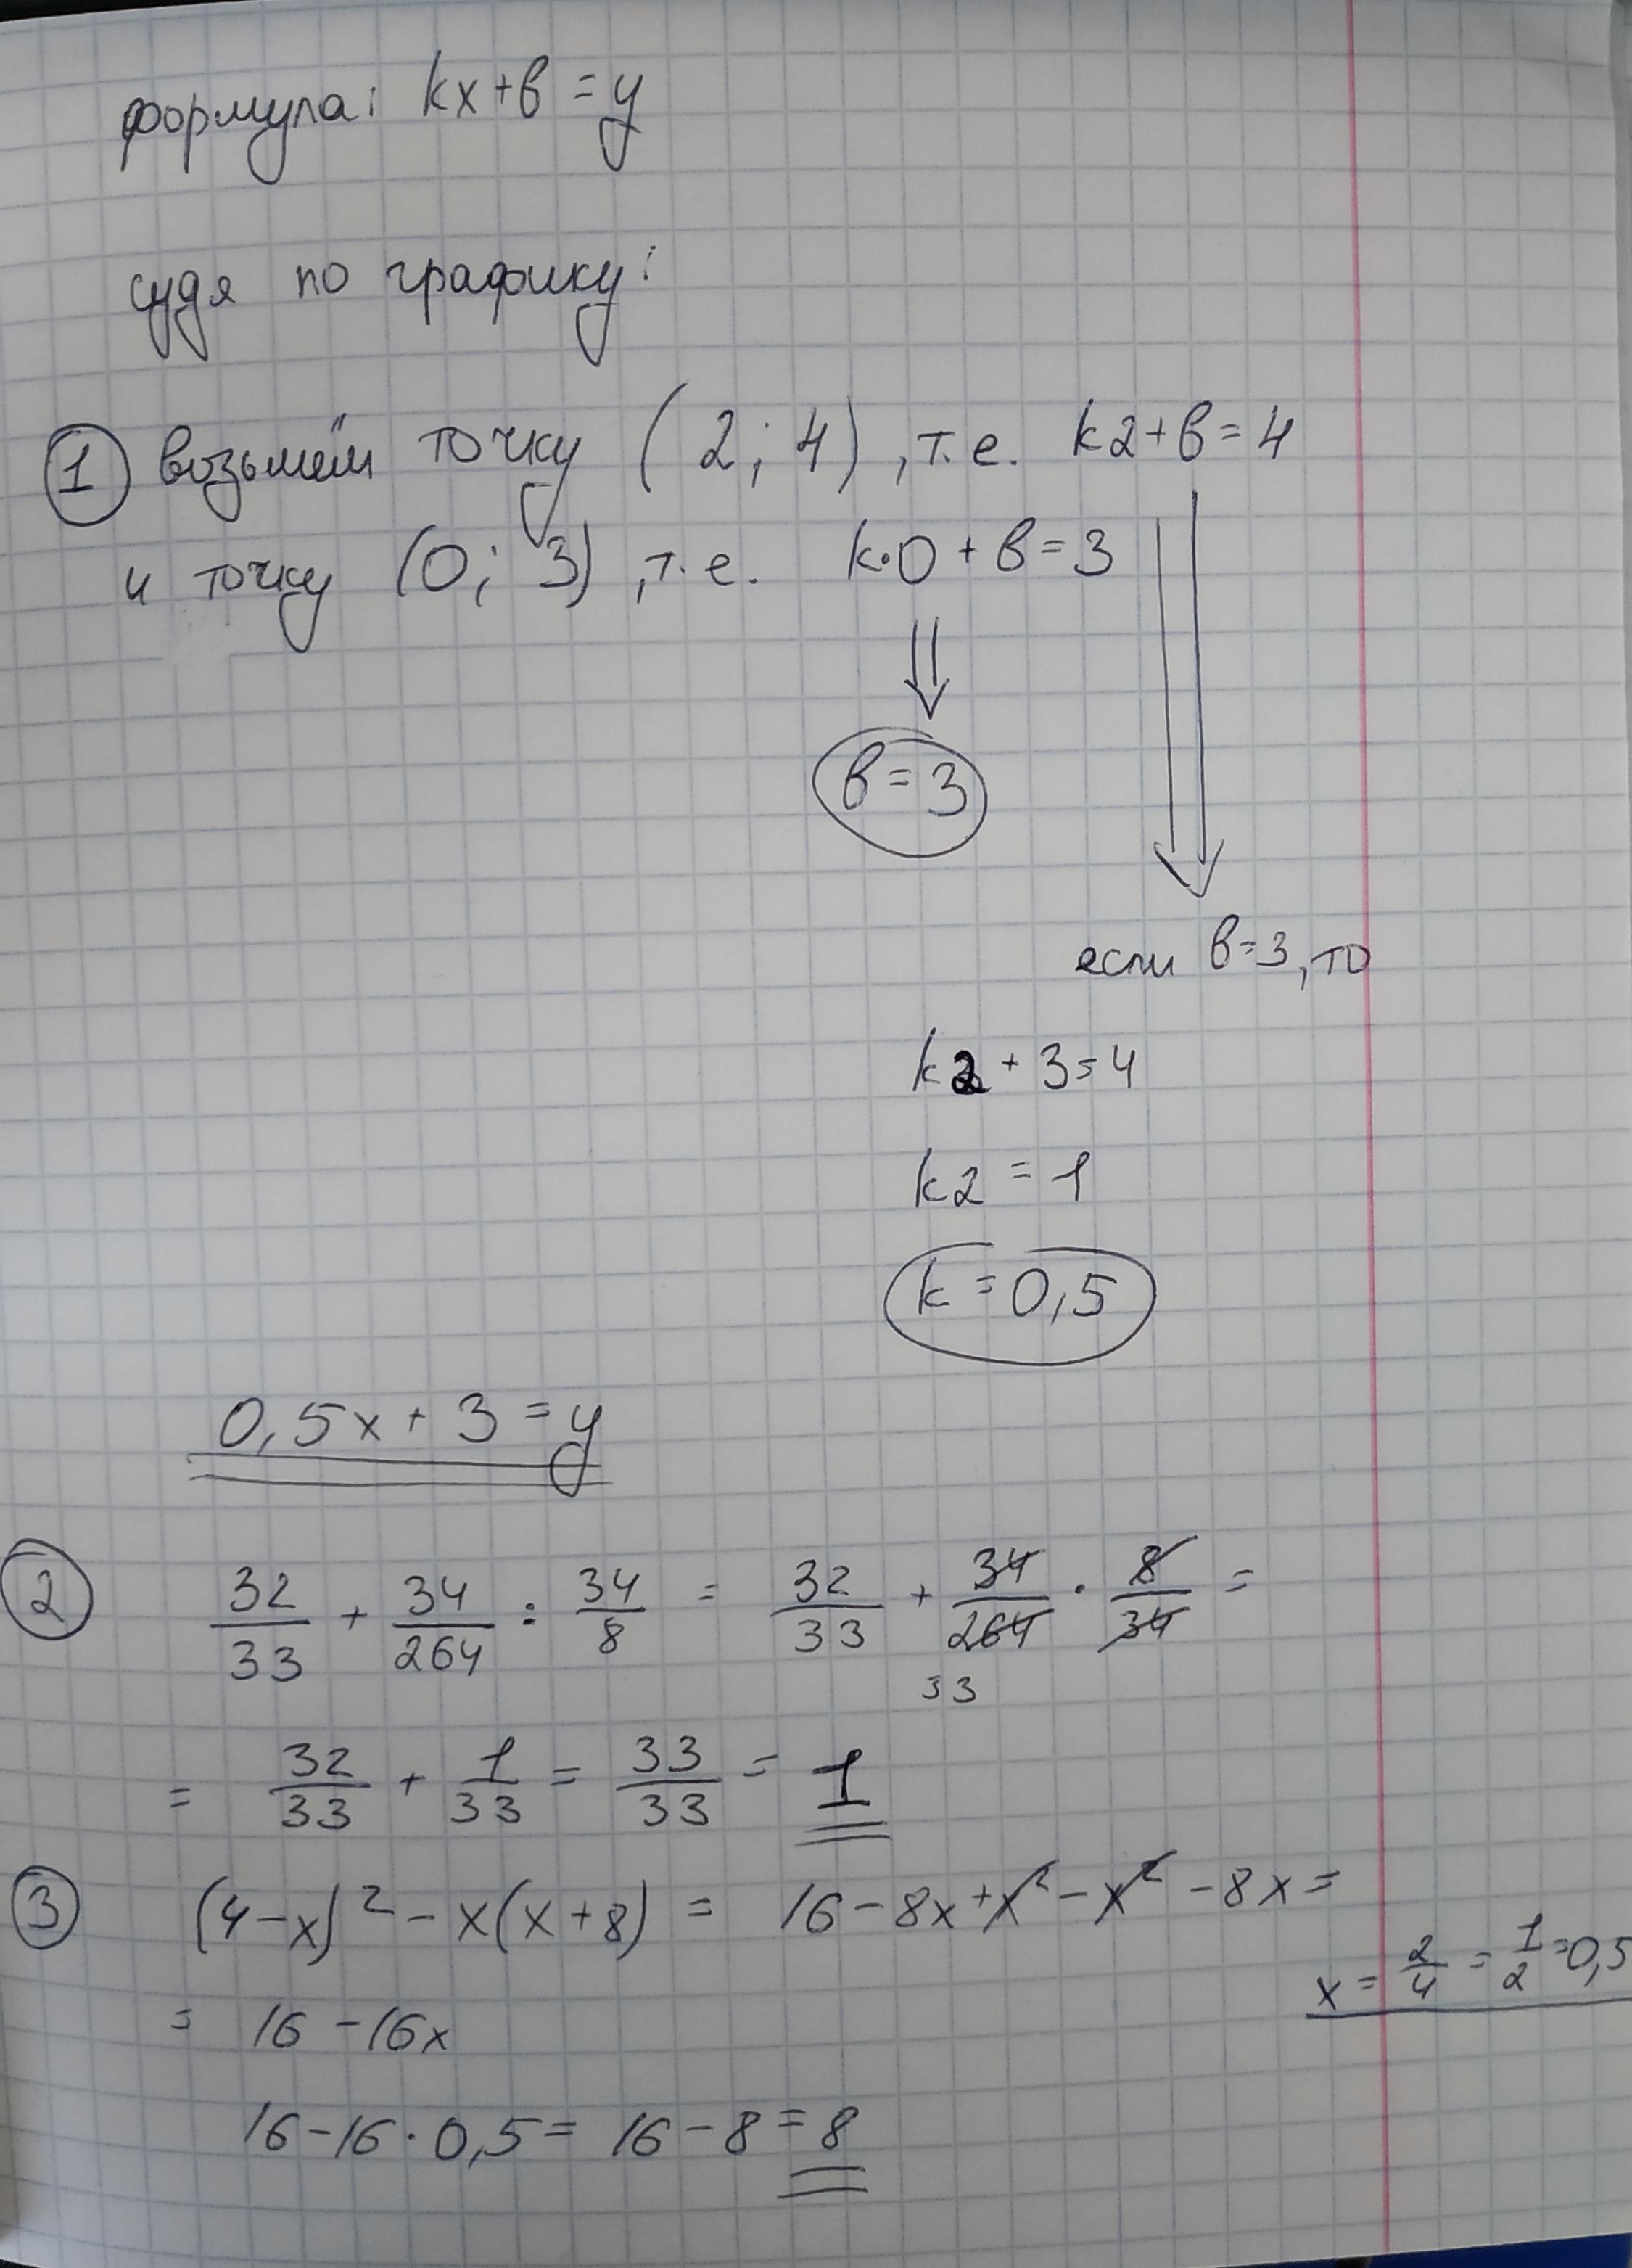 формула: kx+в=y
судя по графику:
① возьмём точку (2; 4), т.е. k2+в=4
и точку (0; 3), т.е. k·0+в=3
в=3
если в=3, то
k2+3=4
k2=1
k=0,5
0,5x+3=y
② 32/33 + 34/264 : 34/8 = 32/33 + 34/264 · 8/34 =
33
= 32/33 + 1/33 = 33/33 = 1
③ (4-x)² - x(x+8) = 16-8x+x²-x²-8x=
x = 2/4 = 1/2 = 0,5
= 16-16x
16-16·0,5= 16-8=8